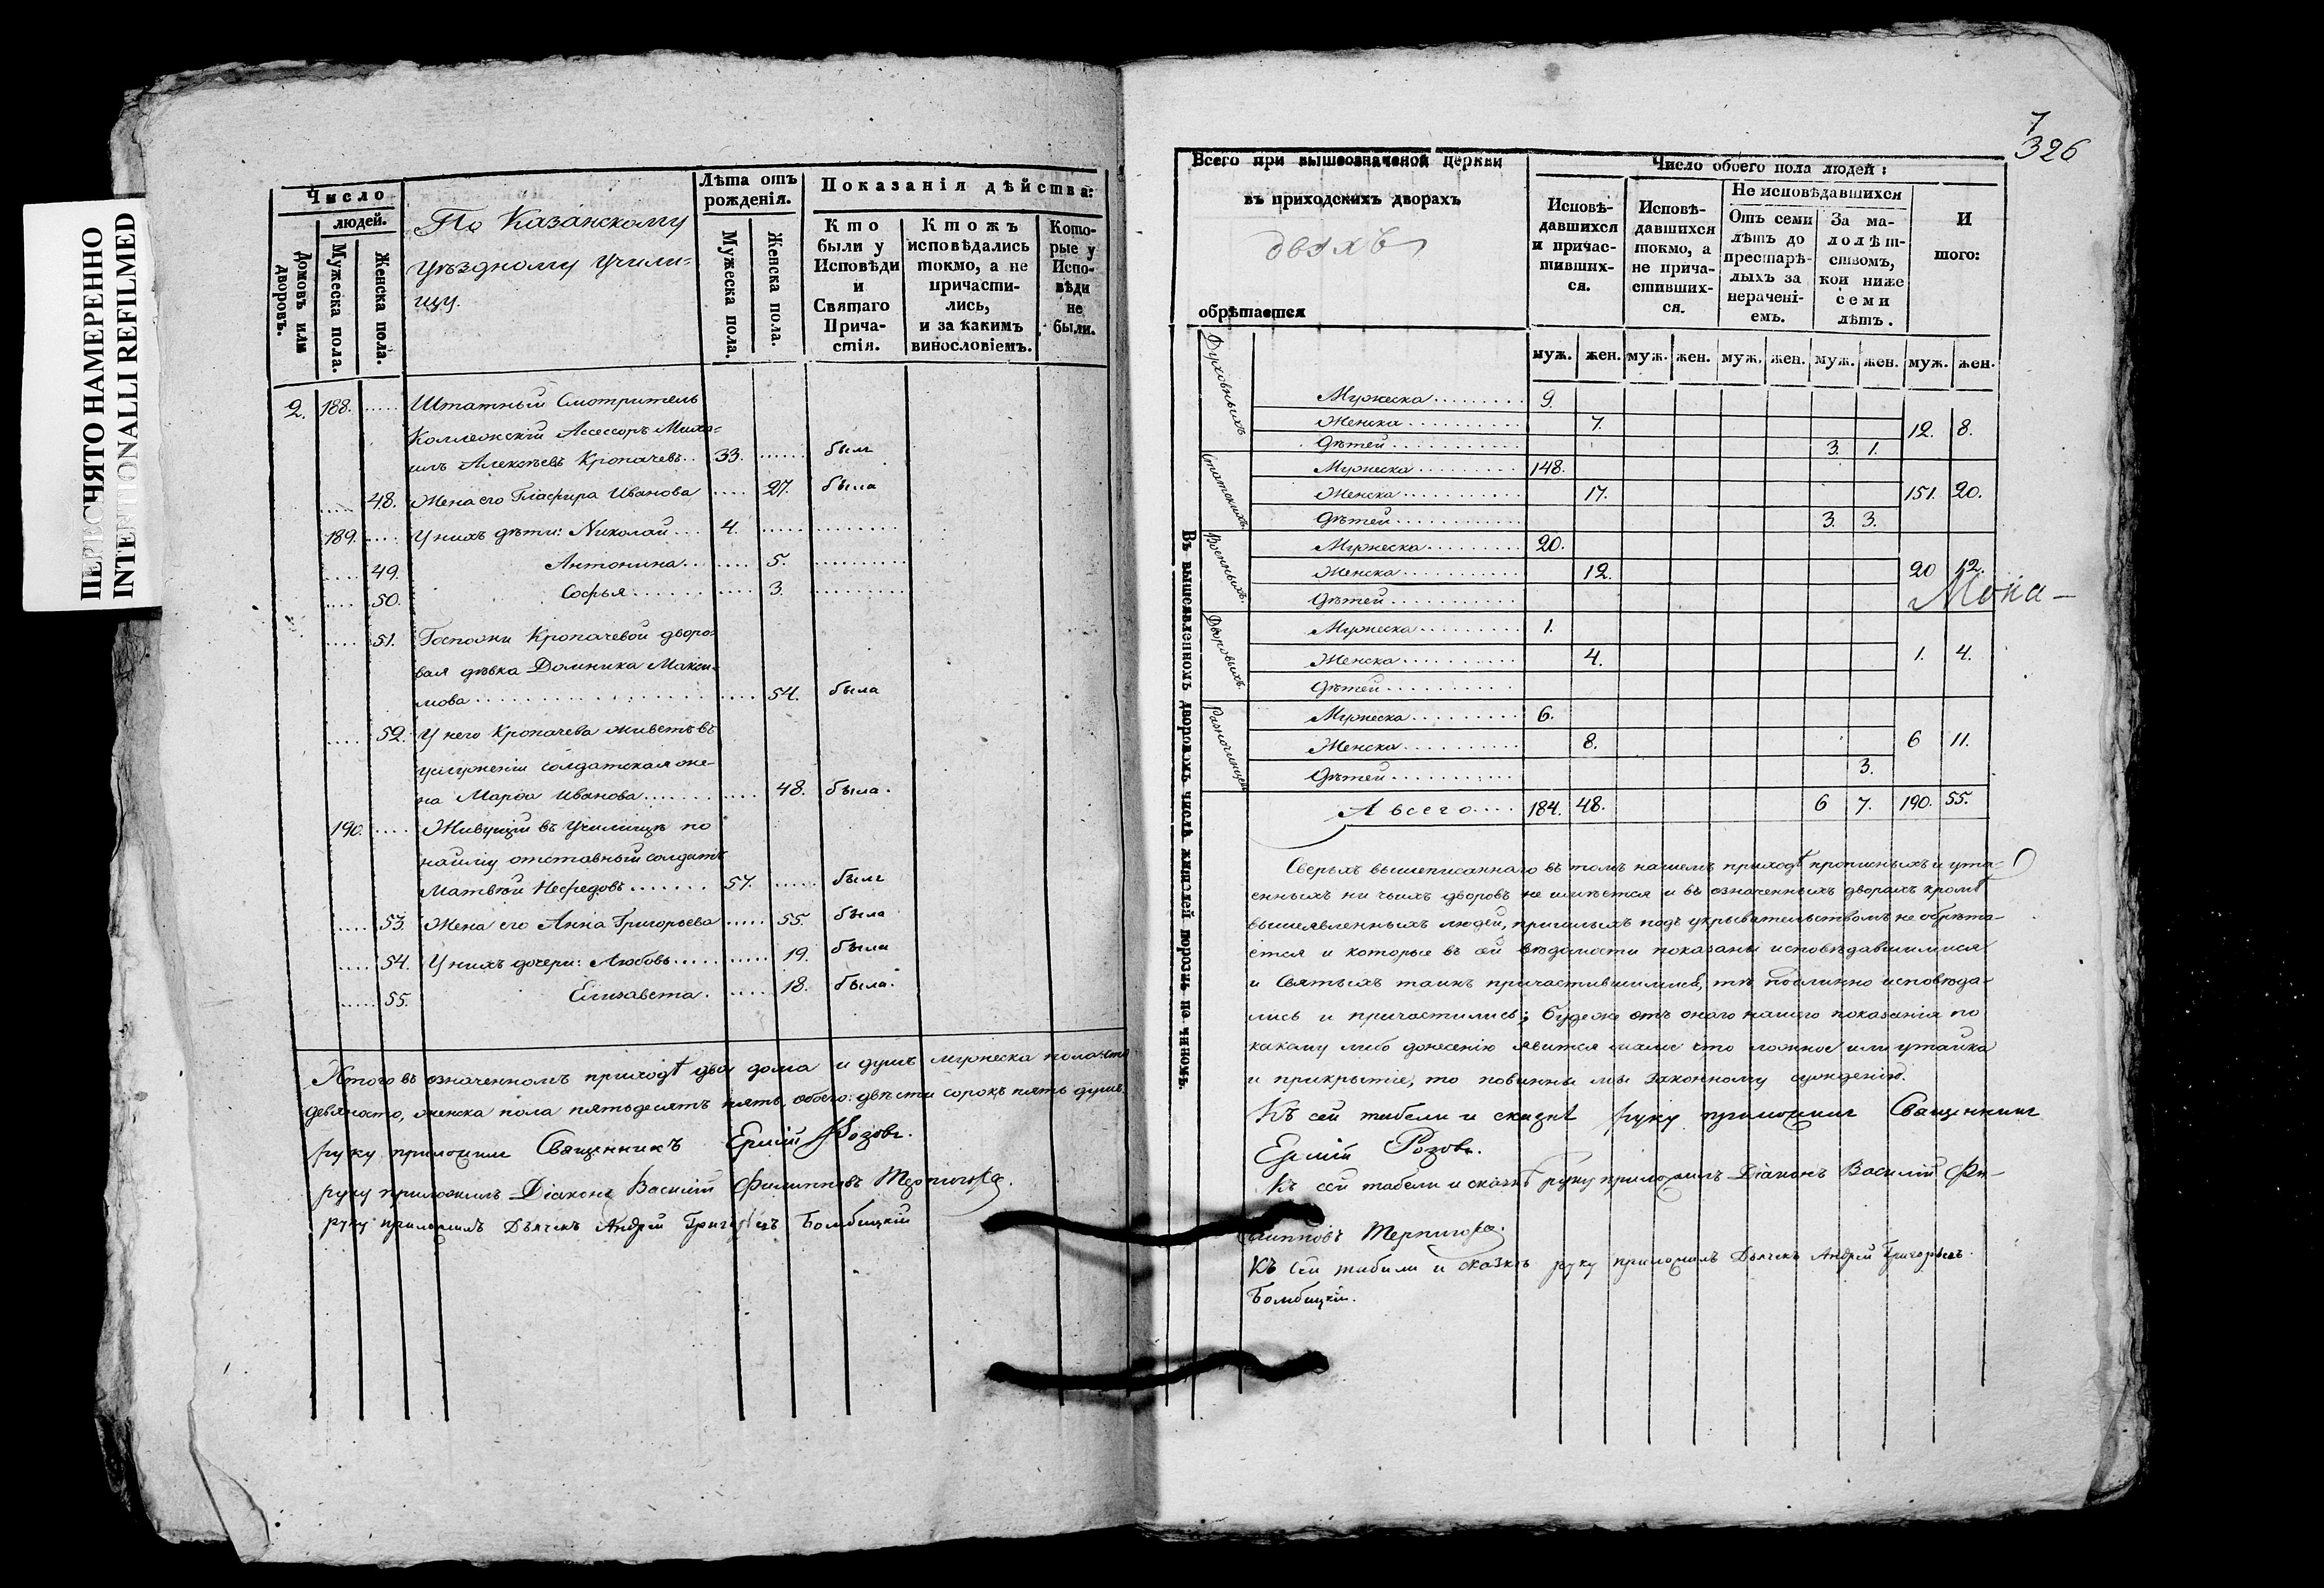 ПЕРЕСНЯТО НАМЕРЕННО
INTENTIONALLI REFILMED
Число
людей.
Домовъ или дворовъ.
Мужеска пола.
Женска пола.
По Казанскому
уѣздному учили-
щу.
Лѣта отъ рожденія.
Мужеска пола.
Женска пола.
Показанія дѣйства:
Кто были у Исповѣди и Святаго Прича-стія.
Ктожъ исповѣдались токмо, а не причасти-лись, и за какимъ винословіемъ.
Кото-рые у Испо-вѣди не были.
2. 188. Штатный Смотритель
Коллежскій Ассесоръ Миха-
илъ Алексѣевъ Кропачевъ.. 33. былъ
48. Жена его Глафира Иванова 27. была
189. У нихъ дѣти: Николай... 4.
49. Антонина... 5.
50. Софья 3.
51. Госпожи Кропачевой дворо-
вая дѣвка Домника Макси-
мова 54. была
52. У него Кропачева живетъ въ
услуженіи солдатская же-
на Марѳа Иванова 48. была.
190. Живущій въ Училищѣ по
найму отставный солдатъ
Матвѣй Нефедовъ 57. былъ
53. Жена его Анна Григорьева 55. была
54. У нихъ дочери: Любовь 19. была
55. Елизавета. 18. была.
Итого въ означенномъ приходѣ два дома и душъ мужеска пола сто
девяносто, женска пола пятьдесятъ пять, обоего: двѣсти сорокъ пять душъ.
руку приложилъ Священникъ Ермій Розовъ.
руку приложилъ Діаконъ Василій Филипповъ Терпигорѣ.
руку приложилъ Дьячекъ Андрей Григорьевъ Бомбицкій
7
326
Всего при вышеозначеной церкви
въ приходскихъ дворахъ
двухъ
обрѣтается
Число обоего пола людей:
Исповѣ-давшихся и причас-тивших-ся.
Исповѣ-давшихся токмо, а не прича-стивших-ся.
Не исповѣдавшихся
Отъ семи лѣтъ до престарѣ-лыхъ за нерачені-емъ.
За ма-лолѣт-ствомъ, кои ниже семи лѣтъ.
И того:
муж. жен. муж. жен. муж. жен. муж. жен. муж. жен.
Въ вышеявленномъ дворовомъ числѣ жителей порознь по чиномъ.
Духовныхъ
Мужеска 9.
Женска 7. 12. 8.
Дѣтей 3. 1.
Статскихъ
Мужеска 148.
Женска 17. 151. 20.
Дѣтей 3. 3.
Военныхъ.
Мужеска 20.
Женска 12. 20 12.
Дѣтей
Мона-
Дворовыхъ.
Мужеска 1.
Женска 4. 1. 4.
Дѣтей
Разночинцевъ
Мужеска 6.
Женска 8. 6 11.
Дѣтей 3.
А всего.... 184. 48. 6 7. 190. 55.
Сверьхъ вышеписаннаго въ томъ нашемъ приходѣ прописныхъ и ута-
енныхъ ни чьихъ дворовъ не имѣется и въ означенныхъ дворахъ кромѣ
вышеявленныхъ людей, пришлыхъ подъ укрывательствомъ не обрѣта-
ется и которые въ сей вѣдомости показаны исповѣдавшимися
и Святыхъ таинъ причастившимися, тѣ подлинно исповѣда-
лись и причастились; буде же отъ онаго нашего показанія по
какому либо донесенію явится малое что ложное или утайка
и прикрытіе, то повинны мы законному сужденію.
Къ сей табели и сказкѣ руку приложилъ Священникъ
Ермій Розовъ.
Къ сей табели и сказкѣ руку приложилъ Діаконъ Василій Фи-
липповъ Терпигорѣ.
Къ сей табели и сказкѣ руку приложилъ Дьячекъ Андрей Григорьевъ
Бомбицкій.